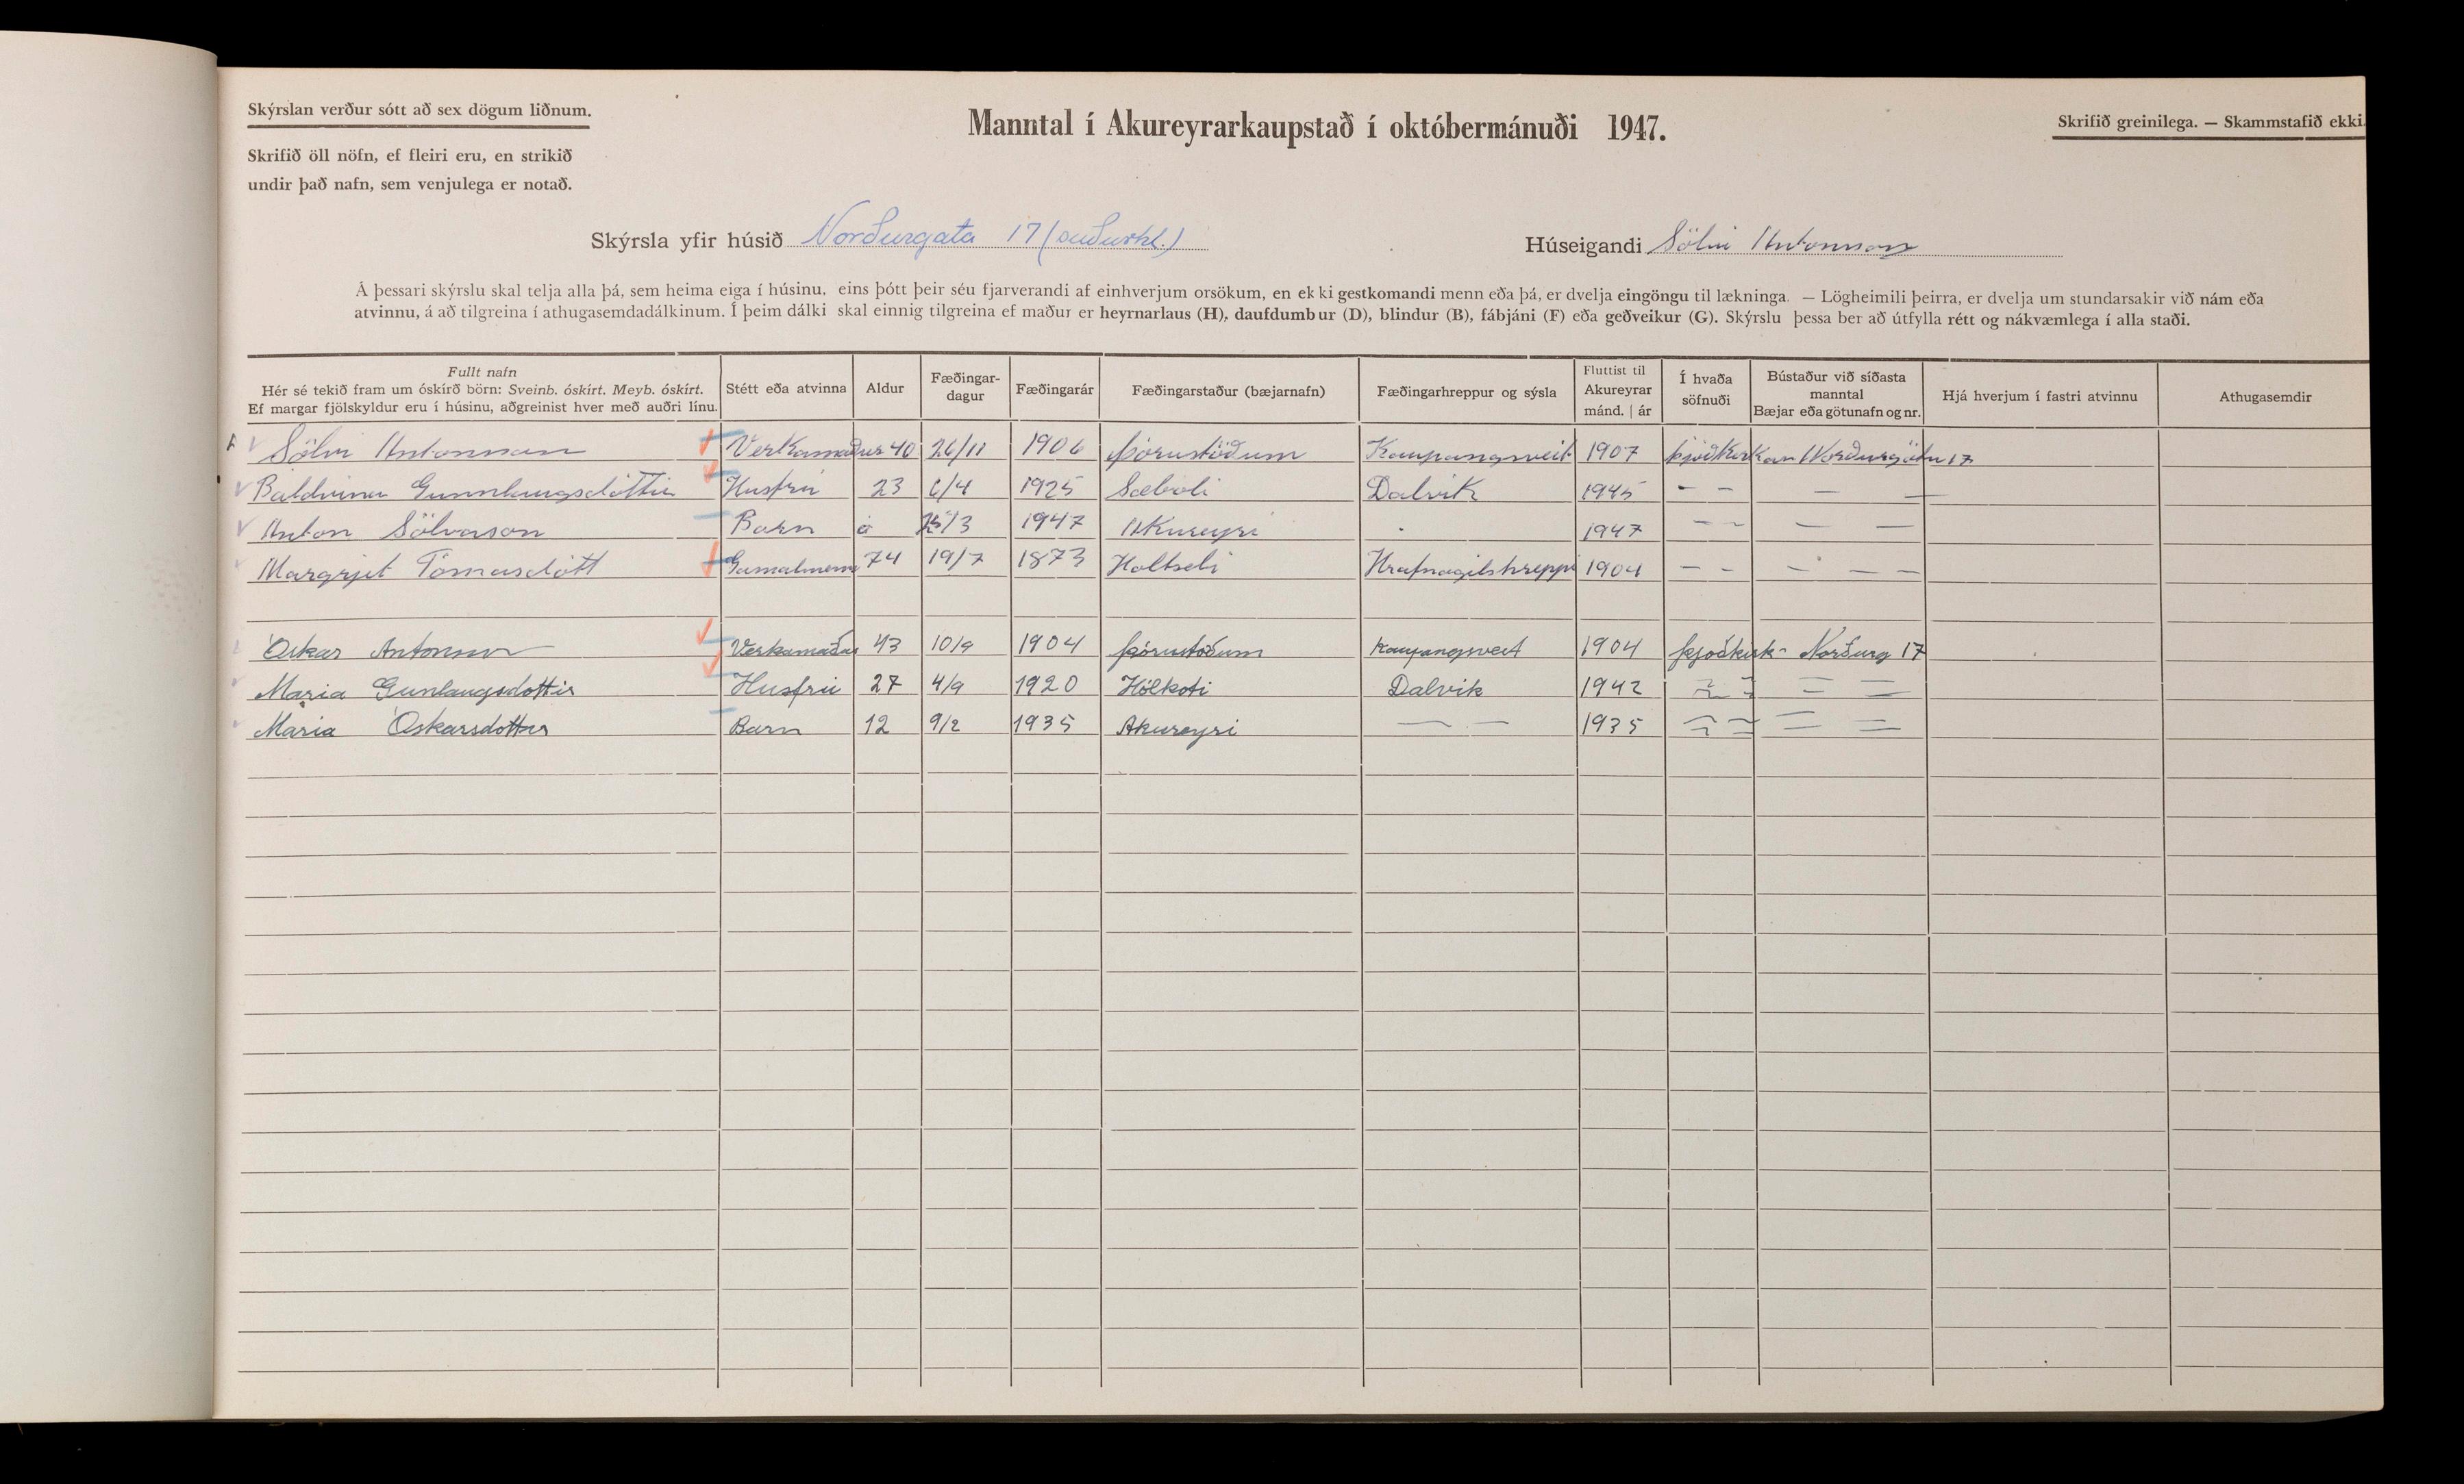 Skýrslan verður sótt að sex dögum liðnum.
Manntal í Akureyrarkaupstað í októbermánuði 1947.
Skrifið greinilega. — Skammstafið ekki.
Skrifið öll nöfn, ef fleiri eru, en strikið
undir það nafn, sem venjulega er notað.
Skýrsla yfir húsið Norðurgata 17 (suðurhl.) Húseigandi Sölvi Antonsson
Á þessari skýrslu skal telja alla þá, sem heima eiga í húsinu, eins þótt þeir séu fjarverandi af einhverjum orsökum, en ekki gestkomandi menn eða þá, er dvelja eingöngu til lækninga. — Lögheimili þeirra, er dvelja um stundarsakir við nám eða
atvinnu, á að tilgreina í athugasemdadálkinum. Í þeim dálki skal einnig tilgreina ef maður er heyrnarlaus (H), daufdumbur (D), blindur (B), fábjáni (F) eða geðveikur (G). Skýrslu þessa ber að útfylla rétt og nákvæmlega í alla staði.
Fullt nafn
Hér sé tekið fram um óskírð börn: Sveinb. óskírt. Meyb. óskírt.
Ef margar fjölskyldur eru í húsinu, aðgreinist hver með auðri línu.
Stétt eða atvinna
Aldur
Fæðingar-
dagur
Fæðingarár
Fæðingarstaður (bæjarnafn)
Fæðingarhreppur og sýsla
Fluttist til
Akureyrar
mánd. | ár
Í hvaða
söfnuði
Bústaður við síðasta
manntal
Bæjar eða götunafn og nr.
Hjá hverjum í fastri atvinnu
Athugasemdir
Sölvi Antonsson Verkamaður 40 26/11 1906 Þórustöðum Kaupangsveit 1907 Þjóðkirkjan Norðurgötu 17
Baldvina Gunnlaugsdóttir Húsfrú 23 6/4 1925 Sæbóli Dalvík 1945 – – — —
Anton Sölvason Barn 0 25/3 1947 Akureyri 1947 – – — —
Margrjet Tómasdótt Gamalmenni 74 19/7 1873 Holtseli Hrafnagilshreppi 1904 – – – — —
Óskar Antonsson Verkamaður 43 10/9 1904 Þórustöðum Kaupangsveit 1904 Þjoðkirk- Norðurg 17
Maria Gunlaugsdottir Husfrú 27 4/9 1920 Hólkoti Dalvik 1942
Maria Óskarsdottir Barn 12 9/2 1935 Akureyri — — 1935